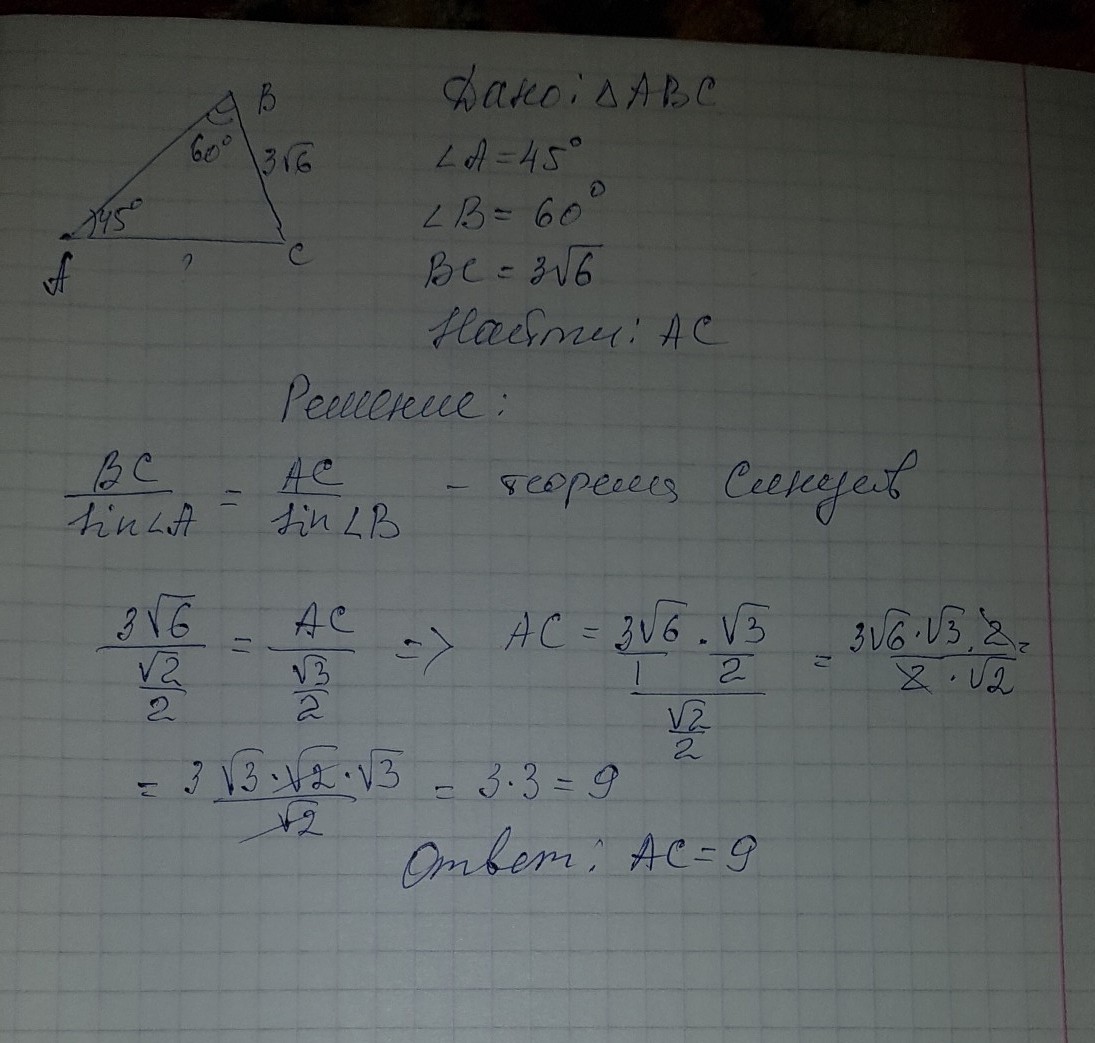 B
Дано: △ABC
60°
3√6
∠A = 45°
45°
∠B = 60°
A
?
C
BC = 3√6
Найти: AC
Решение:
BC/sin∠A = AC/sin∠B - теорема Синусов
3√6/(√2/2) = AC/(√3/2) => AC = (3√6/1 · √3/2)/(√2/2) = (3√6 · √3 · 2)/(2 · √2) =
= 3 (√3 · √2 · √3)/√2 = 3 · 3 = 9
Ответ: AC = 9